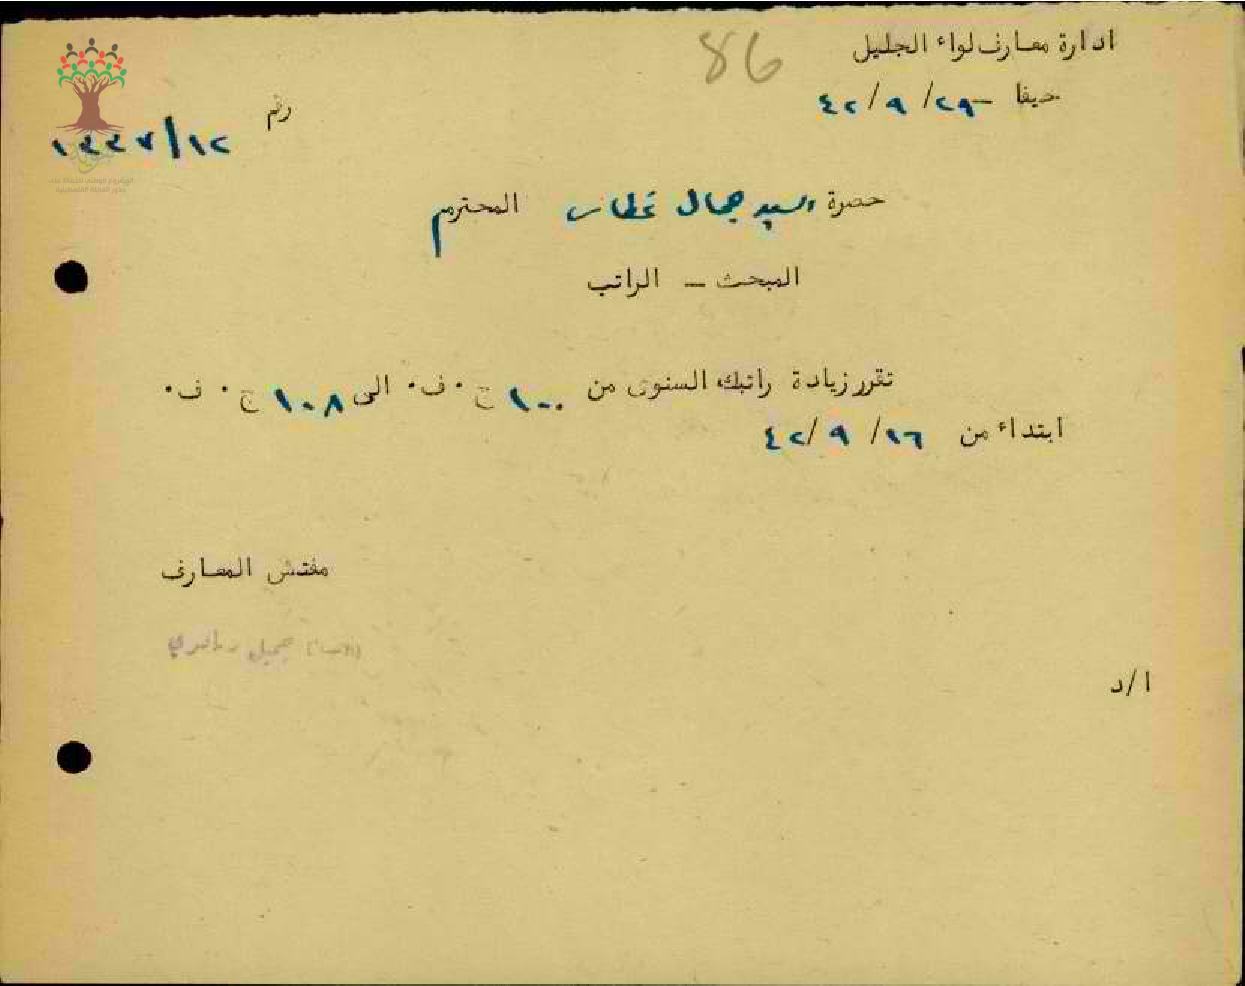 86
ادارة معارف لواء الجليل
حيفا ٢٩/ ٩/ ٤٢
رقم
حضرة السيد جمال المحترم
المبحث - الراتب
تقرر زيادة راتبك السنوى من ١٠٠ ج٠ ف٠ الى ١٠٨ ج٠ ف٠
ابتداء من ١٦/ ٩/ ٤٢
مفتش المعارف
جميل
ا/د